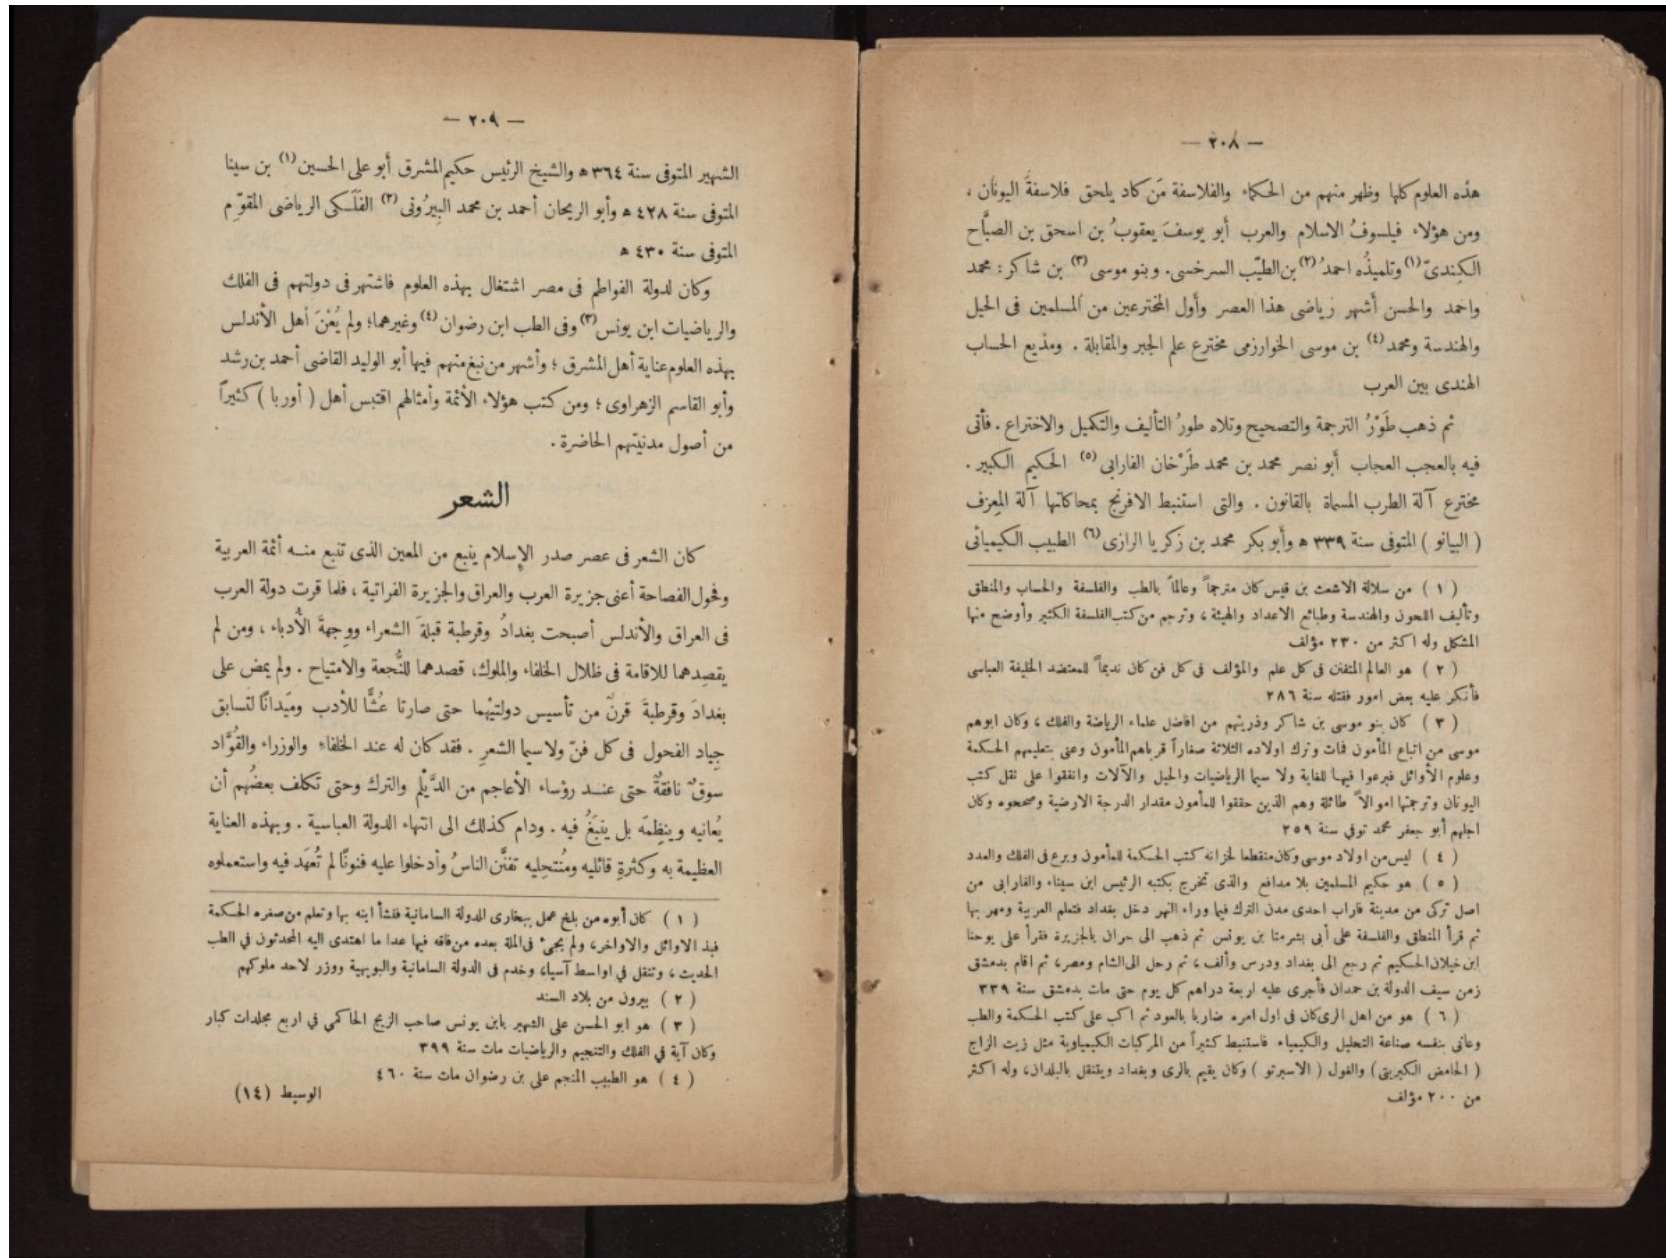 — ٢٠٨ —
هذه العلوم كلها وظهر منهم من الحكماء والفلاسفة مَن كاد يلحق فلاسفةَ اليونان ،
ومن هؤلاء فيلسوفُ الاسلام والعرب أبو يوسفَ يعقوبُ بن اسحق بن الصبَّاح
الكِندىّ (١) وتلميذُه احمدُ (٢) بن الطيّب السرخسى. وبنو موسى (٣) بن شاكر : محمد
واحمد والحسن أشهر رياضى هذا العصر وأول المخترعين من المسلمين فى الحيل
والهندسة ومحمد (٤) بن موسى الخوارزمى مخترع علم الجبر والمقابلة . ومذيع الحساب
الهندى بين العرب
ثم ذهب طَوْرُ الترجمة والتصحيح وتلاه طورُ التأليف والتكميل والاختراع . فأتى
فيه بالعجب العجاب أبو نصر محمد بن محمد طَرْخان الفارابى (٥) الحكيم الكبير .
مخترع آلة الطرب المسماة بالقانون . والتى استنبط الافرنج بمحاكاتها آلة المِعزف
( البيانو ) المتوفى سنة ٣٣٩ هـ وأبو بكر محمد بن زكريا الرازى (٦) الطبيب الكيميائى
( ١ ) من سلالة الاشعث بن قيس كان مترجماً وعالماً بالطب والفلسفة والحساب والمنطق
وتأليف اللحون والهندسة وطبائع الاعداد والهيئة ، وترجم من كتب الفلسفة الكثير وأوضح منها
المشكل وله اكثر من ٢٣٠ مؤلف
( ٢ ) هو العالم المتفنن فى كل علم والمؤلف فى كل فن كان نديماً للمعتضد الخليفة العباسى
فأنكر عليه بعض امور فقتله سنة ٢٨٦
( ٣ ) كان بنو موسى بن شاكر وذريتهم من افاضل علماء الرياضة والفلك ، وكان ابوهم
موسى من اتباع المأمون فمات وترك اولاده الثلاثة صغاراً فرباهم المأمون وعنى بتعليمهم الحكمة
وعلوم الأوائل فبرعوا فيها للغاية ولا سيما الرياضيات والحيل والآلات وانفقوا على نقل كتب
اليونان وترجمتها اموالاً طائلة وهم الذين حققوا للمأمون مقدار الدرجة الارضية وصححوه وكان
اجلهم أبو جعفر محمد توفي سنة ٢٥٩
( ٤ ) ليس من اولاد موسى وكان منقطعا لخزانه كتب الحكمة للمأمون وبرع فى الفلك والعدد
( ٥ ) هو حكيم المسلمين بلا مدافع والذى تخرج بكتبه الرئيس ابن سيناء والفارابى من
اصل تركى من مدينة فاراب احدى مدن الترك فيما وراء النهر دخل بغداد فتعلم العربية ومهر بها
ثم قرأ المنطق والفلسفة على أبى بشر متا بن يونس ثم ذهب الى حران بالجزيرة فقرأ على يوحنا
ابن خيلان الحكيم ثم رجع الى بغداد ودرس وألف ، ثم رحل الى الشام ومصر، ثم اقام بدمشق
زمن سيف الدولة بن حمدان فأجرى عليه اربعة دراهم كل يوم حتى مات بدمشق سنة ٣٣٩
( ٦ ) هو من اهل الرى كان فى اول امره ضاربا بالعود ثم اكب على كتب الحكمة والطب
وعانى بنفسه صناعة التحليل والكيمياء فاستنبط كثيراً من المركبات الكيمياوية مثل زيت الزاج
( الحامض الكبريتى ) والغول ( الاسبرتو ) وكان يقيم بالرى وبغداد ويتنقل بالبلدان، وله اكثر
من ٢٠٠ مؤلف
— ٢٠٩ —
الشهير المتوفى سنة ٣٦٤ هـ والشيخ الرئيس حكيم المشرق أبو على الحسين (١) بن سينا
المتوفى سنة ٤٢٨ هـ وأبو الريحان أحمد بن محمد البِيرُونى (٢) الفَلَكى الرياضى المقوِّم
المتوفى سنة ٤٣٠ هـ
وكان لدولة الفواطم فى مصر اشتغال بهذه العلوم فاشتهر فى دولتهم فى الفلك
والرياضيات ابن يونس (٣) وفى الطب ابن رضوان (٤) وغيرهما؛ ولم يُعْنَ أهل الأندلس
بهذه العلوم عناية أهل المشرق ؛ وأشهر من نبغ منهم فيها أبو الوليد القاضى أحمد بن رشد
وأبو القاسم الزهراوى ؛ ومن كتب هؤلاء الأئمة وأمثالهم اقتبس أهل ( أوربا ) كثيراً
من أصول مدنيّتهم الحاضرة .
الشعر
كان الشعر فى عصر صدر الإسلام ينبع من المعين الذى تنبع منه أئمة العربية
وفحول الفصاحة أعنى جزيرة العرب والعراق والجزيرة الفراتية ، فلما قرت دولة العرب
فى العراق والأندلس أصبحت بغدادُ وقرطبة قبلةَ الشعراء ووِجهةَ الأُدباء ، ومن لم
يقصِدهما للاقامة فى ظلال الخلفاء والملوك، قصدهما للنُّجعة والامتياح . ولم يمض على
بغدادَ وقرطبةَ قرنٌ من تأسيس دولتيْهما حتى صارتا عُشًّا للأدب ومَيدانًا لتسابق
جِياد الفحول فى كل فنّ ولا سيما الشعرِ . فقد كان له عند الخلفاءِ والوزراء والقُوَّاد
سوقٌ نافقةٌ حتى عند رؤساء الأعاجم من الدَّيْلَم والترك وحتى تكلف بعضُهم أن
يُعانيه وينظِمَه بل ينبَغُ فيه . ودام كذلك الى انتهاء الدولة العباسية . وبهذه العناية
العظيمة به وكثرةِ قائليه ومُنتحِليه تفنَّن الناسُ وأدخلوا عليه فنونًا لم تُعهَد فيه واستعملوه
( ١ ) كان أبوه من بلخ عمل ببخارى للدولة السامانية فنشأ ابنه بها وتعلم من صغره الحكمة
فبذ الاوائل والاواخر، ولم يجئ فى الملة بعده من فاقه فيها عدا ما اهتدى اليه المحدثون في الطب
الحديث ، وتنقل في اواسط آسيا، وخدم فى الدولة السامانية والبويهية ووزر لاحد ملوكهم
( ٢ ) بيرون من بلاد السند
( ٣ ) هو ابو الحسن على الشهير بابن يونس صاحب الزيج الحاكمي في اربع مجلدات كبار
وكان آية في الفلك والتنجيم والرياضيات مات سنة ٣٩٩
( ٤ ) هو الطبيب المنجم على بن رضوان مات سنة ٤٦٠
الوسيط (١٤)